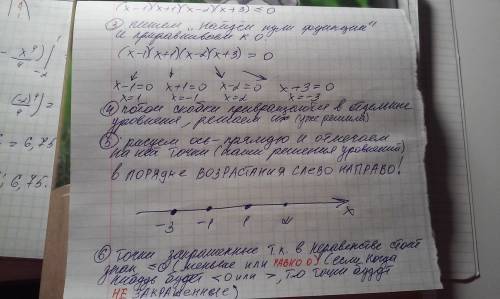 (x-1)(x+1)(x-2)(x+3) ≤ 0
③ пишем "найдем нули функции"
и приравниваем к 0
(x-1)(x+1)(x-2)(x+3) = 0
x-1=0 x+1=0 x-2=0 x+3=0
x=1 x=-1 x=2 x=-3
④ потом скобки превращаются в отдельные
уравнения, решаем их (уже решила)
⑤ рисуем ось-прямую и отмечаем
на ней точки (наши решения уравнений)
в ПОРЯДКЕ ВОЗРАСТАНИЯ СЛЕВО НАПРАВО!
-3 -1 1 2 x
⑥ точки закрашенные т.к. в неравенстве стоит
знак ≤0 (меньше или РАВНО 0) (если когда
нибудь будет <0 или >, то точки будут
НЕ ЗАКРАШЕННЫЕ)
= 6,75
6,75.